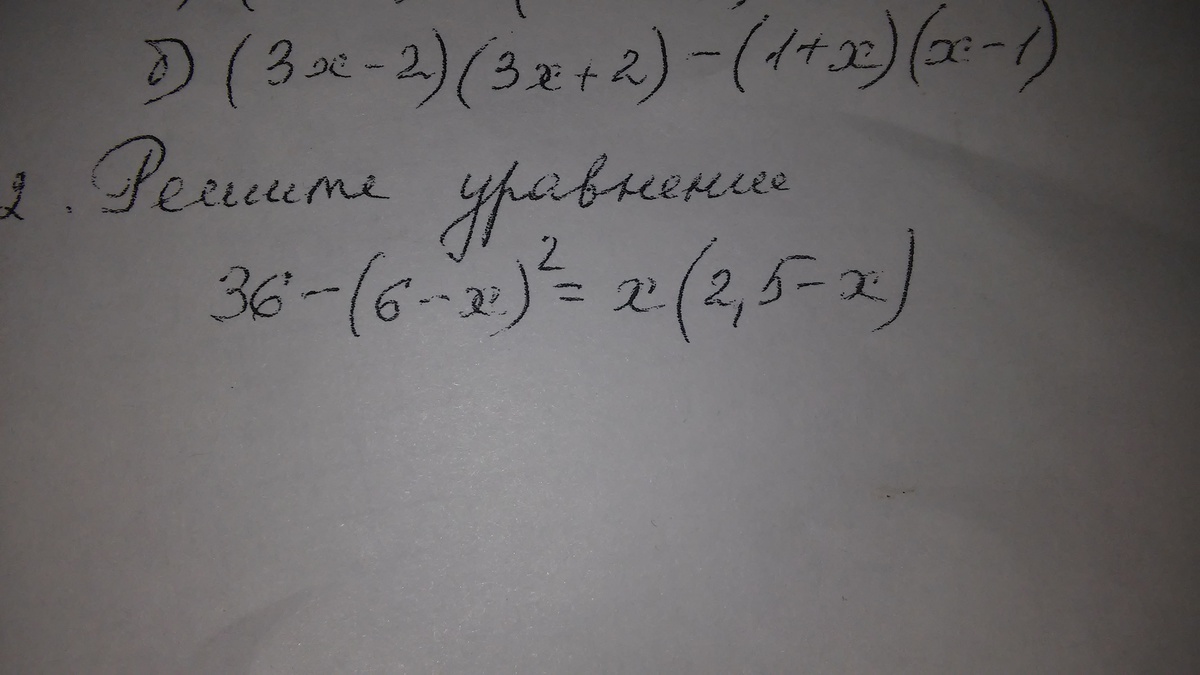 б) (3x-2)(3x+2)-(1+x)(x-1)
2. Решите уравнение
36-(6-x)²=x(2,5-x)